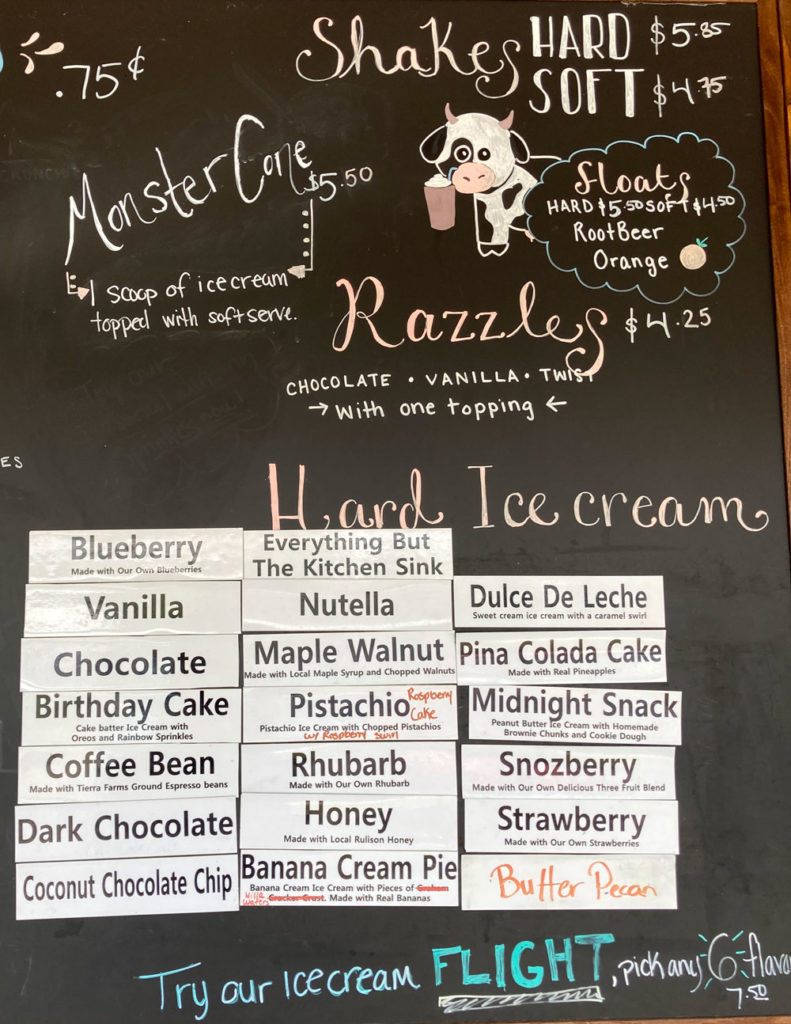 .75¢
Shakes HARD $5.85
SOFT $4.75
Monster Cone $5.50
1 scoop of ice cream
topped with soft serve.
Floats
HARD $5.50 SOFT $4.50
RootBeer
Orange
Razzles $4.25
CHOCOLATE • VANILLA • TWIST
→ with one topping ←
ES
Hard Ice cream
Blueberry
Made with Our Own Blueberries
Vanilla
Chocolate
Birthday Cake
Cake batter Ice Cream with
Oreos and Rainbow Sprinkles
Coffee Bean
Made with Tierra Farms Ground Espresso beans
Dark Chocolate
Coconut Chocolate Chip
Everything But
The Kitchen Sink
Nutella
Maple Walnut
Made with Local Maple Syrup and Chopped Walnuts
Pistachio Raspberry
Cake
Pistachio Ice Cream with Chopped Pistachios
w/ Raspberry swirl
Rhubarb
Made with Our Own Rhubarb
Honey
Made with Local Rulison Honey
Banana Cream Pie
Banana Cream Ice Cream with Pieces of Graham
Nilla Wafers Cracker Crust. Made with Real Bananas
Dulce De Leche
Sweet cream ice cream with a caramel swirl
Pina Colada Cake
Made with Real Pineapples
Midnight Snack
Peanut Butter Ice Cream with Homemade
Brownie Chunks and Cookie Dough
Snozberry
Made with Our Own Delicious Three Fruit Blend
Strawberry
Made with Our Own Strawberries
Butter Pecan
Try our Icecream FLIGHT, pick any 6 flavo
7.50